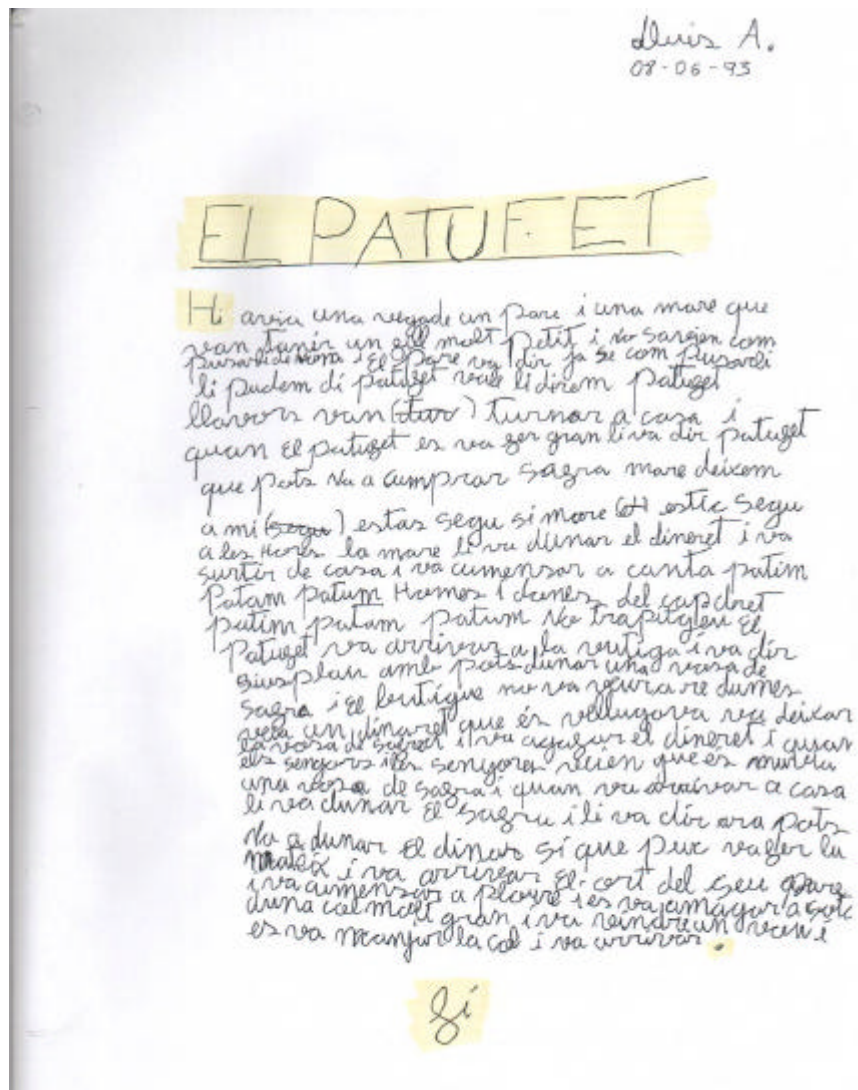 Lluis A.
08-06-93
EL PATUFET
Hi avia una vegade un pare i una mare que
van tanir un fill molt petit i no savien com
pusarli de noma i El pare va dir ja se com pusarli
li pudem di patufet vale li direm patufet
llavors van (tur) turnar a casa i
quan El patufet es va fer gran li va dir patufet
que pots na a cumprar safra mare deixem
a mi (segu) estas segu si mare estic segu
a les hores la mare li va dunar el dineret i va
surtir de casa i va cumensar a canta patim
Patam patum Homes i dones del cap dret
patim patam patum No trapitgeu El
Patufet va arrivar a la vutiga i va dir
sius plau amb pots dunar una vosa de
safra i El butigue no va veura re dumes
veia un dinaret que és vellugava va deixar
la vosa de safra i va agafar el dineret i quan
els senyors i les senyores veien que és muvia
una vosa de safra i quan va arrivar a casa
li va dunar El safra i li va dir ara pots
Na a dunar El dinar si que puc va fer la
mateix i va arrivar El cort del seu pare
i va cumensar a ploure i es va amagar a sota
duna col molt gran i va veindre un
es va manjar la col i va arrivar.
fi